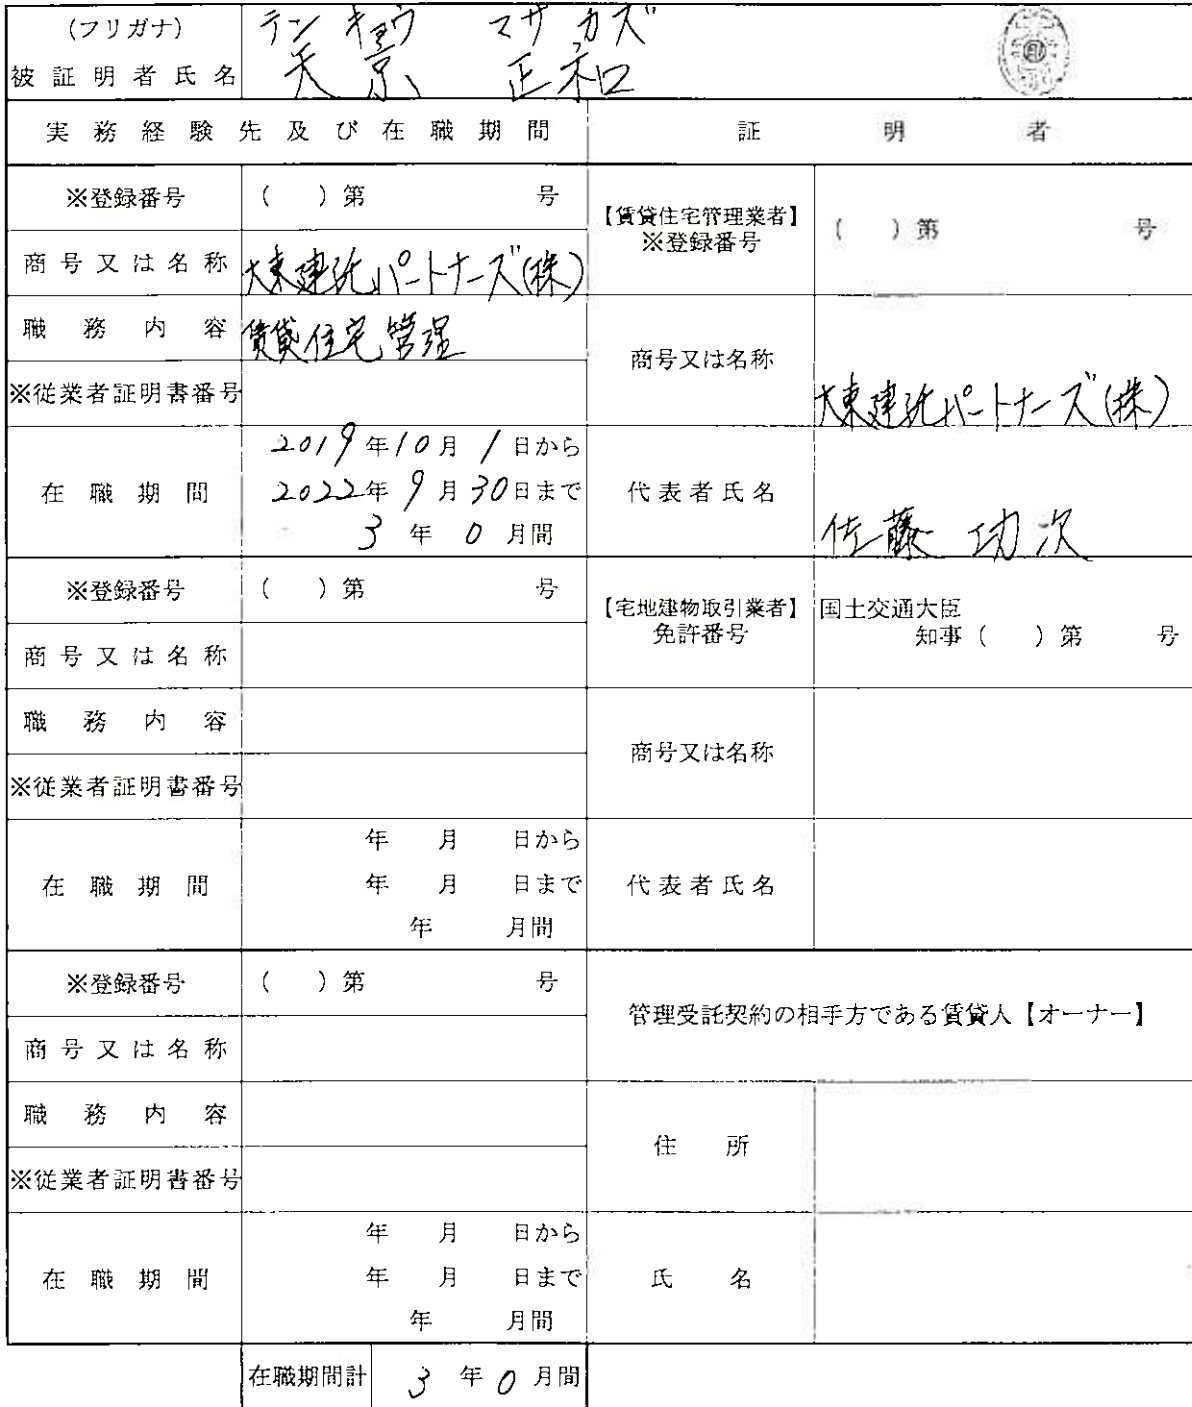 (フリガナ) テンキョウ マサカズ
被証明者氏名 天京 正和
実務経験先及び在職期間 証明者
※登録番号 ( ) 第 号
【賃貸住宅管理業者】
※登録番号 ( ) 第 号
商号又は名称 大東建託パートナーズ(株)
職務内容 賃貸住宅管理
商号又は名称 大東建託パートナーズ(株)
※従業者証明書番号
在職期間
2019年10月1日から
2022年9月30日まで
3年0月間
代表者氏名 佐藤 功次
※登録番号 ( ) 第 号
【宅地建物取引業者】
免許番号
国土交通大臣
知事 ( ) 第 号
商号又は名称
職務内容
商号又は名称
※従業者証明書番号
在職期間
年 月 日から
年 月 日まで
年 月間
代表者氏名
※登録番号 ( ) 第 号
管理受託契約の相手方である賃貸人【オーナー】
商号又は名称
職務内容
住所
※従業者証明書番号
在職期間
年 月 日から
年 月 日まで
年 月間
氏名
在職期間計 3年0月間